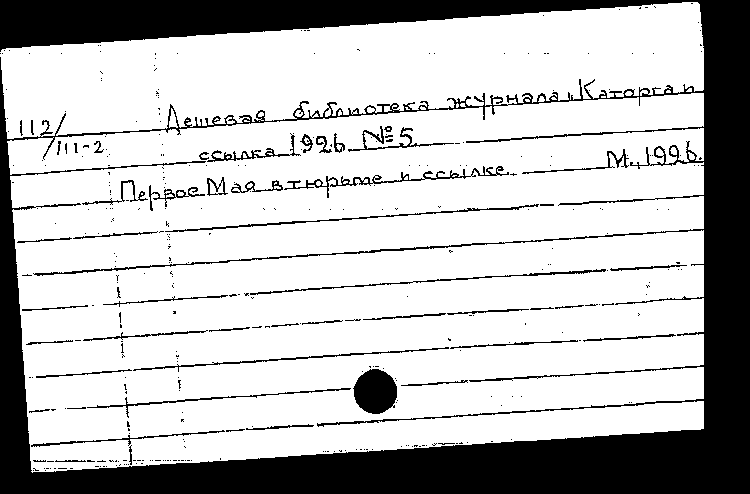 Дешевая библиотека журнала „Каторга и
112/III-2
ссылка 1926 № 5.
Первое Мая в тюрьме и ссылке. М., 1926.